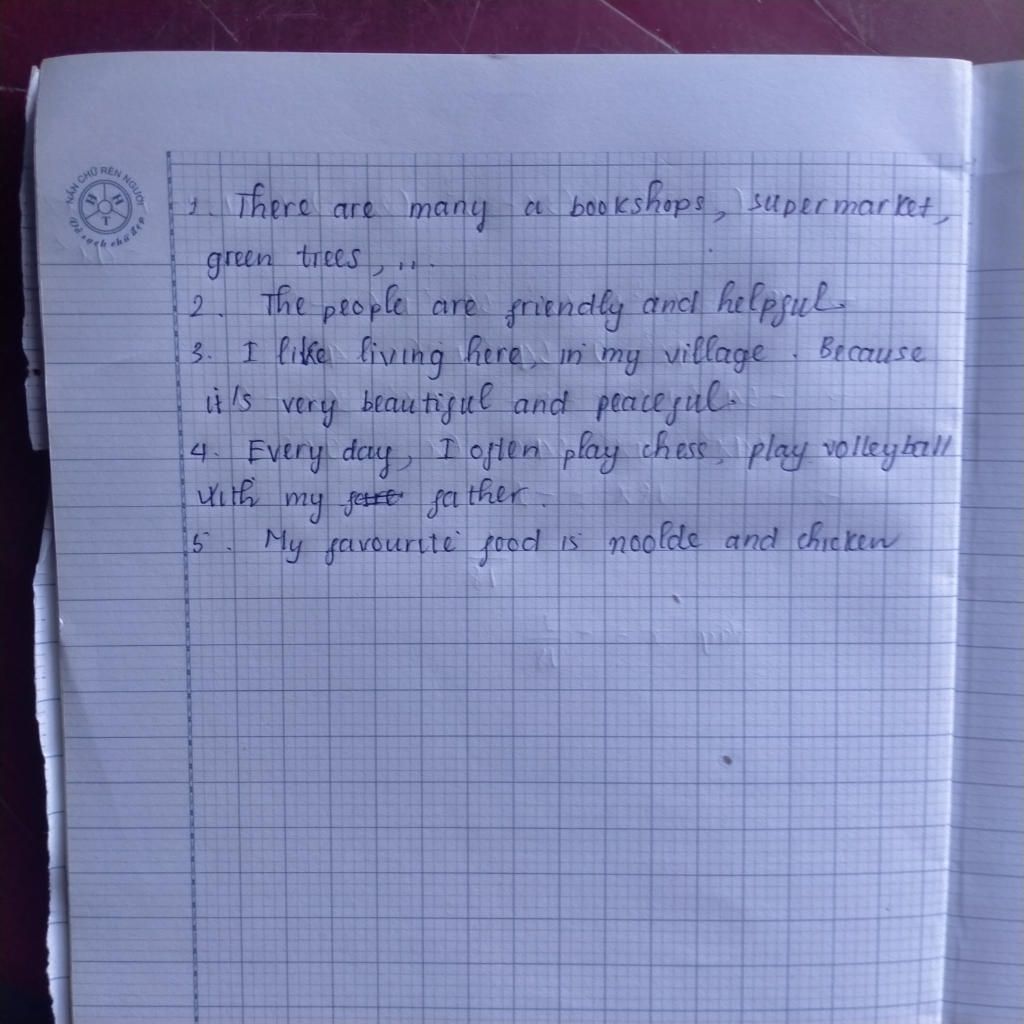 NẮN CHỮ RÈN NGƯỜI
H H T
Vở sạch chữ đẹp
1. There are many a bookshops, supermarket,
green trees, ...
2. The people are friendly and helpful.
3. I like living here, in my village. Because
it's very beautiful and peaceful.
4. Every day, I often play chess, play volleyball
with my father.
5. My favourite food is noolde and chicken